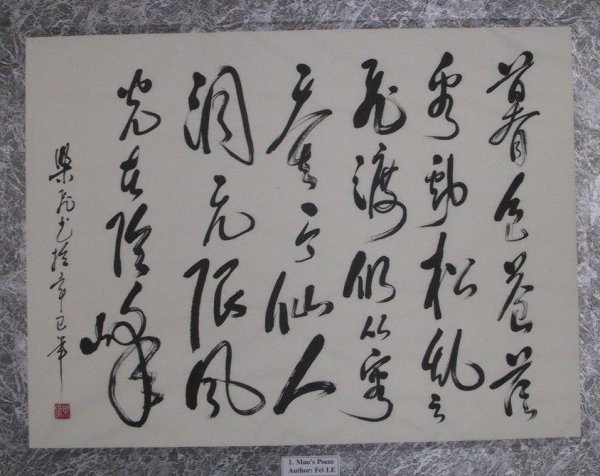 暮色苍茫
看劲松乱云
飞渡仍从容
天生一个仙人
洞无限风
光在险峰
樂飞书於辛巳年
1. Mao's Poem
Author: Fei LE